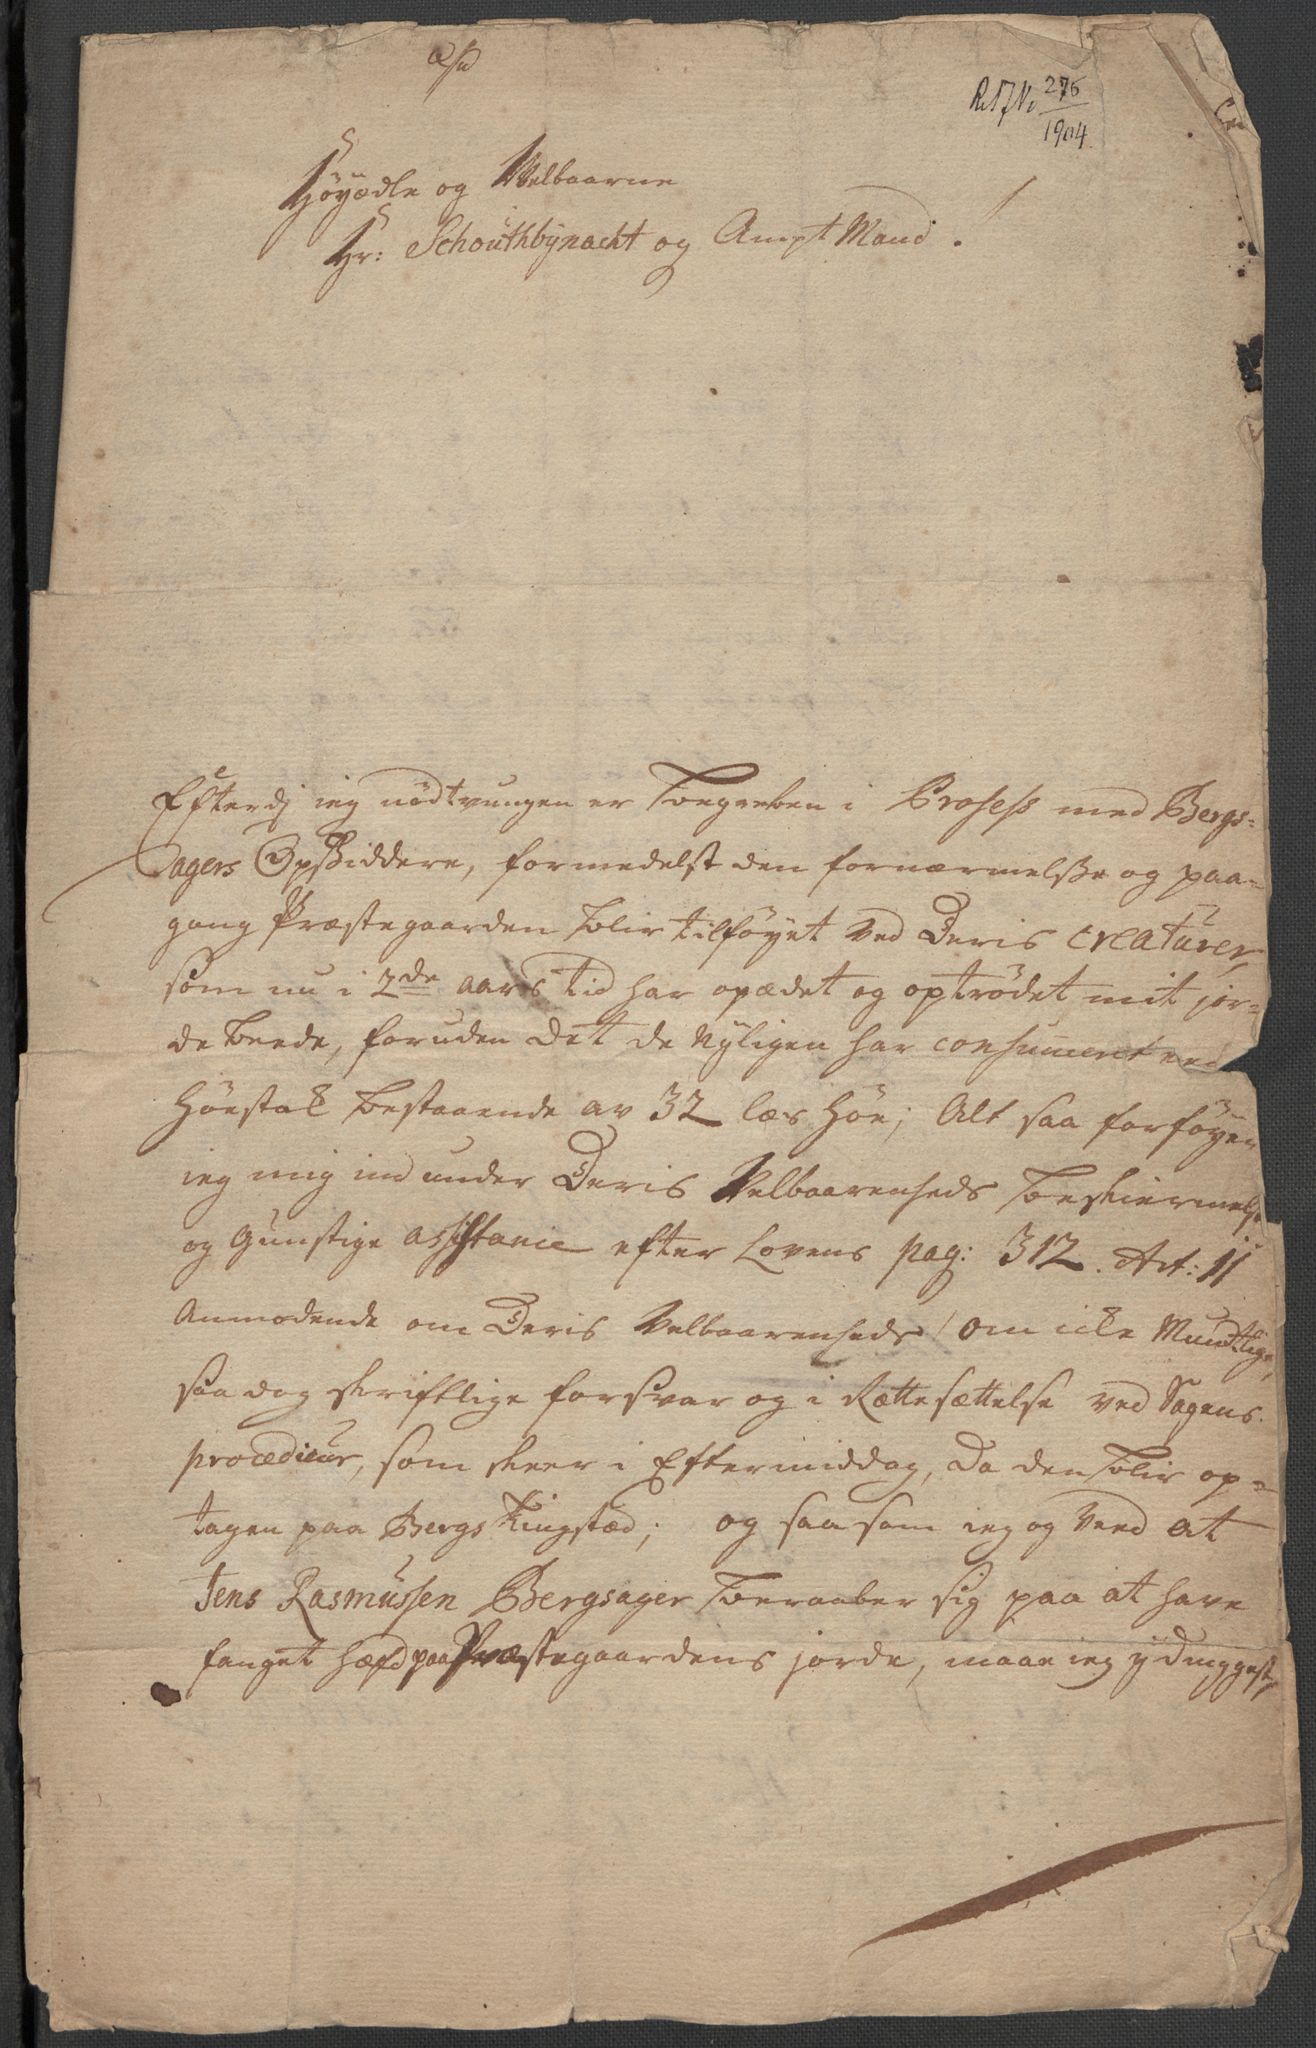 276
1904
Høyædle og Velbaarne
Hr: Schouthbynacht og Ampt Mand !
Efterdj ieg nödtvungen er begreben i Prosess med Bergs-
agers Opsiddere, formedelst den fornærmelsse og paa-
gang Præstegaarden blir tilföyet ved Deris creaturer,
som nu i 2de aars tid har opædet og optrödet mit jor-
de beede, foruden det de nyligen har consumeret eend
Höestak bestaaende av 32 læs Höe; Alt saa forföyer
ieg mig ind under Deris Velbaarenheds beskiermelse
og Gunstige assistance efter Lovens pag: 312. Art: 11
Anmodende om Deris Velbaarenheds / om icke Mundtlige,
saa dog skriftlige forsvar og i Rættesættelse ved Sagens
procedieur, som skeer i Eftermiddag, da den blir op-
tagen paa Bergs Tingstæd; og saasom ieg og veed at
Jens Rasmussen Bergsager beraaber sig paa at have
fanget Hæfd paa Præstegaardens jorde, maae ieg ydmygst